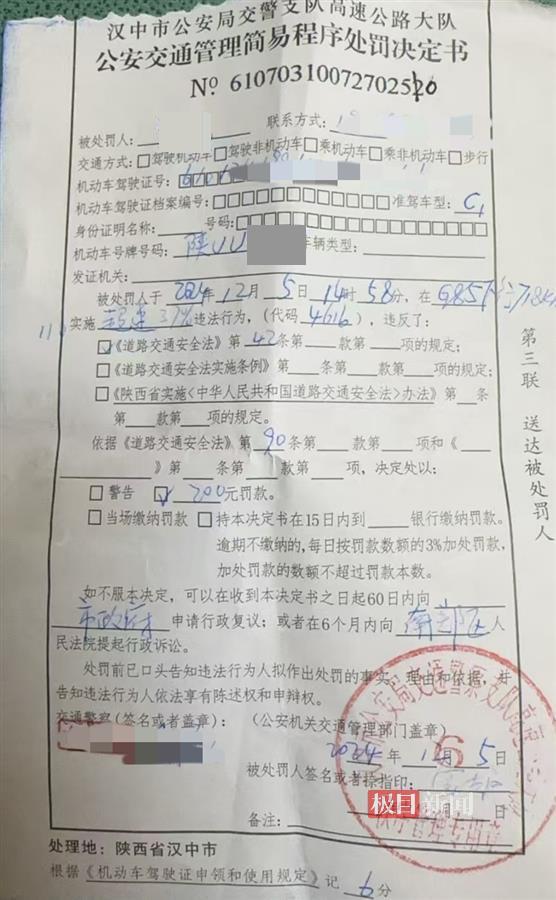 汉中市公安局交警支队高速公路大队
公安交通管理简易程序处罚决定书
№ 6107031007270252
被处罚人: 联系方式:
交通方式:□驾驶机动车□驾驶非机动车□乘机动车□乘非机动车□步行
机动车驾驶证号:
机动车驾驶证档案编号: 准驾车型: C1
身份证明名称: 号码:
机动车号牌号码: 陕UU 车辆类型:
发证机关:
被处罚人于 2024年12月5日14时58分,在 G85
实施 超速37% 违法行为,(代码 4616),违反了:
☑《道路交通安全法》第42条第 款第 项的规定;
□《道路交通安全法实施条例》第 条第 款第 项的规定;
□《陕西省实施〈中华人民共和国道路交通安全法〉办法》第 条
第 款第 项的规定。
依据《道路交通安全法》第90条第 款第 项和《
》第 条第 款第 项,决定处以:
□警告 ☑ 200元罚款。
□当场缴纳罚款 □持本决定书在15日内到 银行缴纳罚款。
逾期不缴纳的,每日按罚款数额的3%加处罚款,
加处罚款的数额不超过罚款本数。
如不服本决定,可以在收到本决定书之日起60日内向
市政府 申请行政复议;或者在6个月内向 南郑区 人
民法院提起行政诉讼。
处罚前已口头告知违法行为人拟作出处罚的事实、理由和依据,并
告知违法行为人依法享有陈述权和申辩权。
交通警察(签名或者盖章): (公安机关交通管理部门盖章)
2024年12月5日
被处罚人签名或者捺指印:
日
备注:
处理地:陕西省汉中市
根据《机动车驾驶证申领和使用规定》记 6 分
第三联 送达被处罚人
极目新闻
6